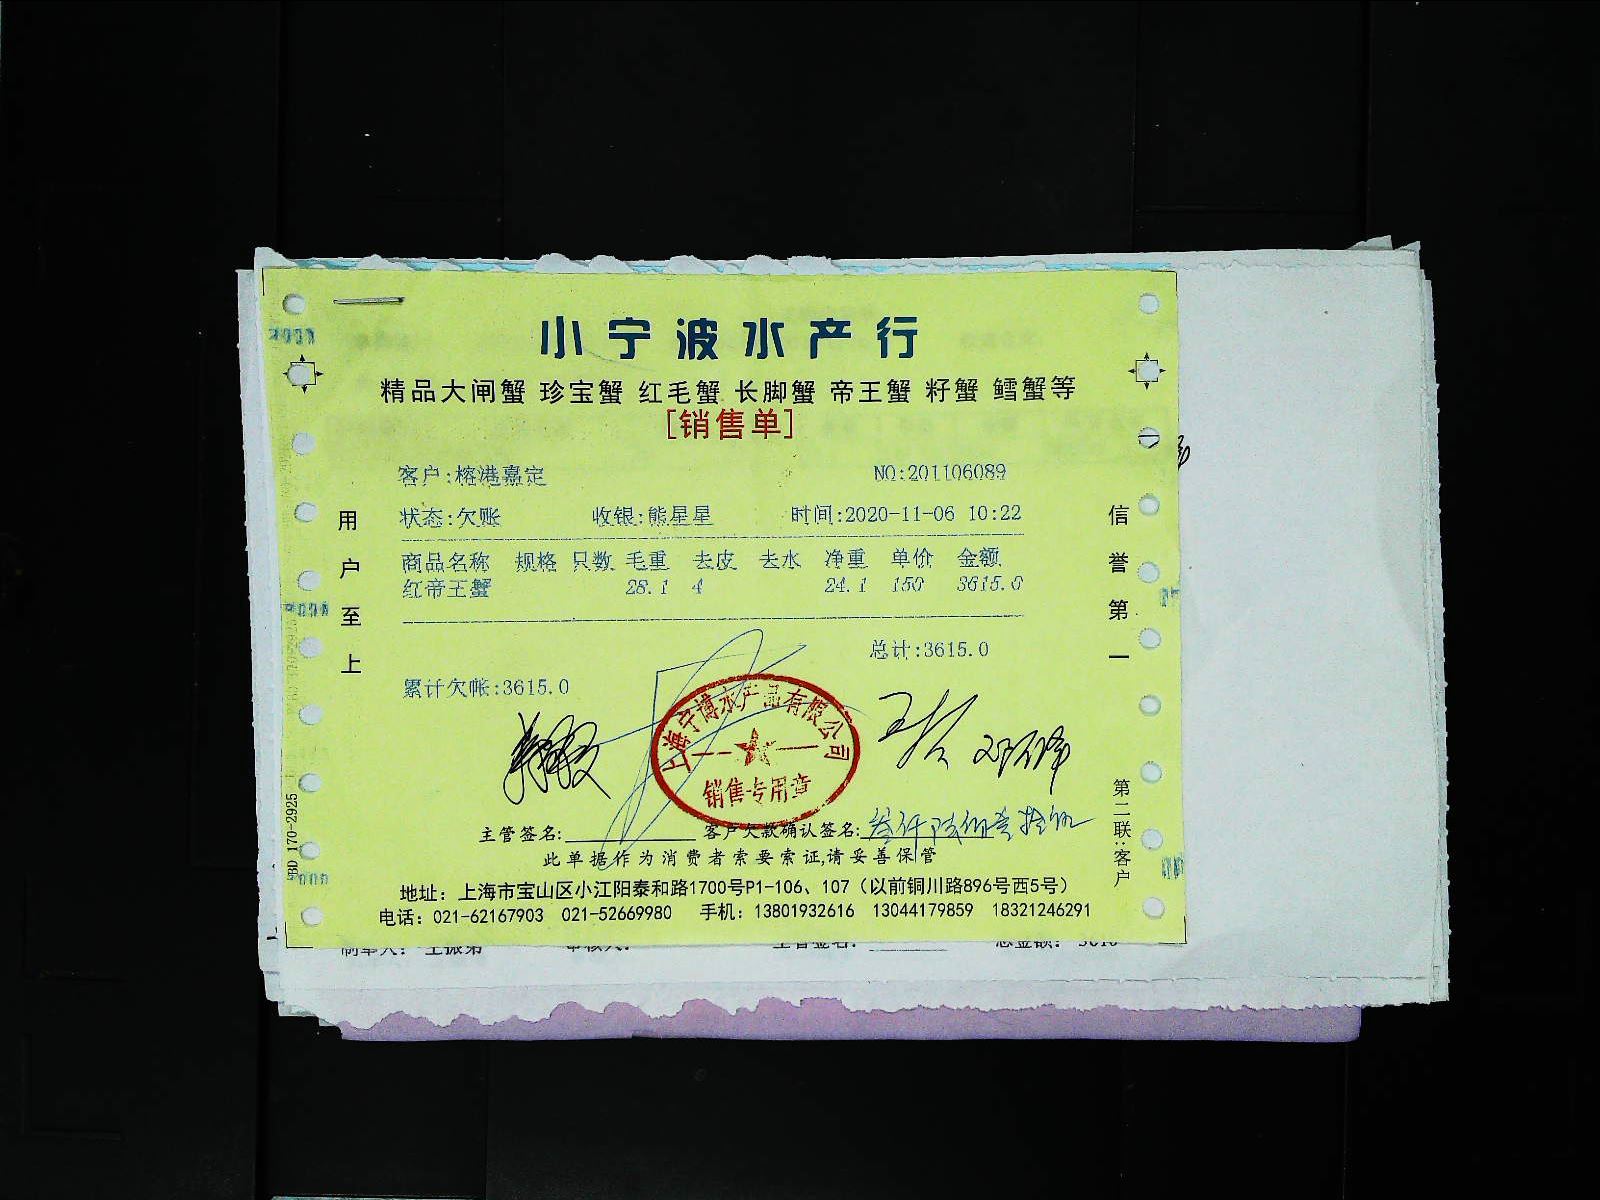 小宁波水产行
精品大闸蟹 珍宝蟹 红毛蟹 长脚蟹 帝王蟹 籽蟹 鳕蟹等
[销售单]
客户:榕港嘉定 NO:201106089
状态:欠账 收银:熊星星 时间:2020-11-06 10:22
商品名称 规格 只数 毛重 去皮 去水 净重 单价 金额
红帝王蟹 28.1 4 24.1 150 3615.0
总计:3615.0
累计欠帐:3615.0
用户至上
信誉第一
上海宁博水产品有限公司
销售专用章
主管签名: 客户欠款确认签名: 叁仟陆佰壹拾伍
此单据作为消费者索要索证,请妥善保管
地址：上海市宝山区小江阳泰和路1700号P1-106、107（以前铜川路896号西5号）
电话：021-62167903 021-52669980 手机：13801932616 13044179859 18321246291
第二联:客户
BD 170-2925
制单人： 王振第 审核人： 主管签名： 总金额： 3616